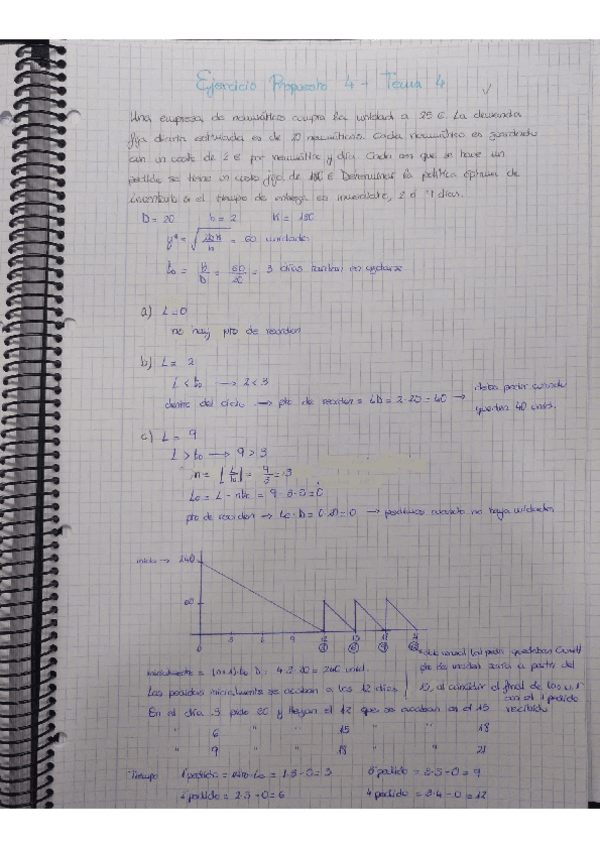 Ejercicio Propuesto 4 - Tema 4
Una empresa de neumáticos compra la unidad a 25 €. La demanda
fija diaria estimada es de 20 neumáticos. Cada neumático es guardado
con un coste de 2 € por neumático y día. Cada vez que se hace un
pedido se tiene un coste fijo de 180 € Determinar la política óptima de
inventario si el tiempo de entrega es inmediato, 2 ó 9 días.
D = 20 h = 2 K = 180
y* = √ 2DK / h = 60 unidades
to = y / D = 60 / 20 = 3 días tardan en agotarse
a) L = 0
no hay pto de reorden
b) L = 2
L < to → 2 < 3
dentro del ciclo → pto de reorden = LD = 2·20 = 40 → debo pedir cuando
quedan 40 unds.
c) L = 9
L > to → 9 > 3
n = ⌊L/to⌋ = 9/3 = 3
Lo = L - nto = 9 - 3·3 = 0
pto de reorden → Lo·D = 0·20 = 0 → pedimos cuando no haya unidades
inicio → 240
60
0 3 6 9 12 15 18 21
inicialmente = (n+1)·to·D = 4·3·20 = 240 unid.
Los pedidos inicialmente se acaban a los 12 días
15, al coincidir el final de los
con el 1 pedido
recibido
En el día 3 pide 60 y llegan el 12 que se acaban en el 15
" 6 " " 15 " " 18
" 9 " " 18 " " 21
Tiempo 1 pedido = nto - Lo = 1·3 - 0 = 3 3 pedido = 3·3 - 0 = 9
2 pedido = 2·3 - 0 = 6 4 pedido = 3·4 - 0 = 12